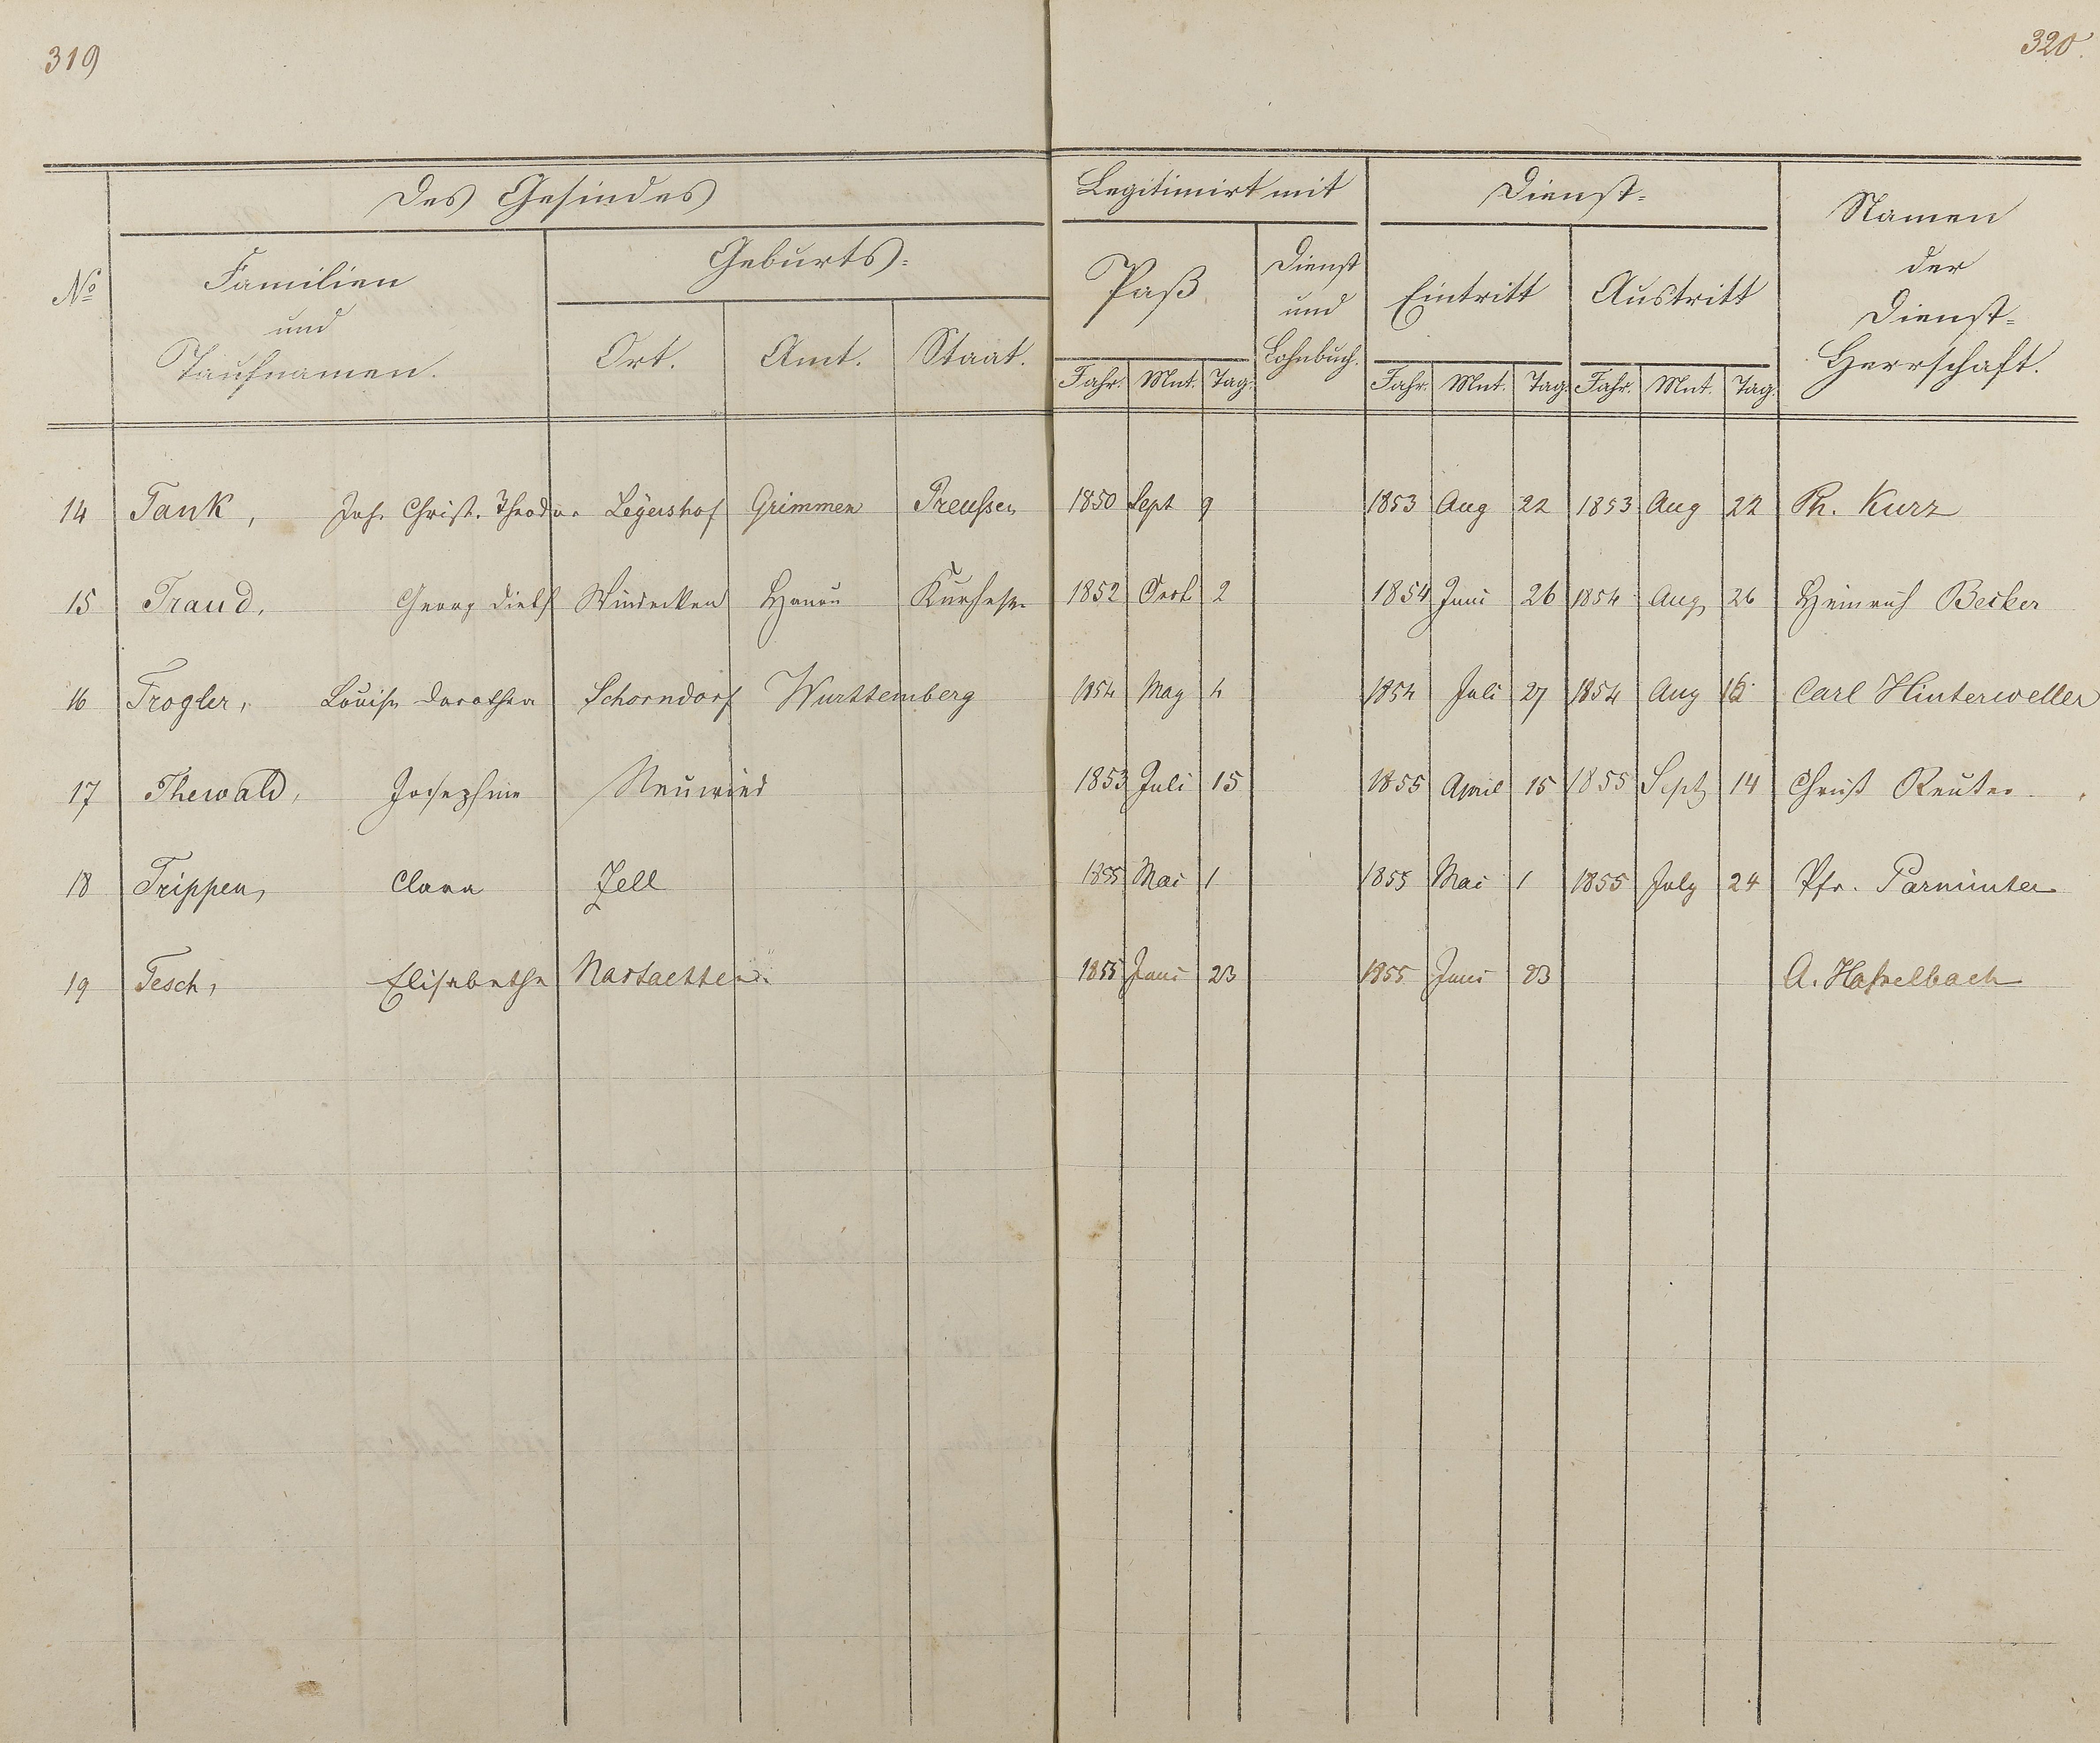 319
320.
Des Gesindes
Legitimirt mit
Dienst=
Namen
der
Dienst=
Herrschaft.
No
Familien
und
Taufnamen.
Geburts=
Ort. Amt. Staat.
Paß
Dienst
und
Lohnbuch.
Eintritt Austritt
Jahr. Mnt. Tag. Jahr. Mnt. Tag. Jahr. Mnt. Tag.
14 Tank, Joh. Christ. Theodor Legershof Grimmen Preußen 1850 Sept 9 1853 Aug 22 1853 Aug 22 Ph. Kurz
15 Traud, Georg Windecken Hanau Kurhess. 1852 Octb 2 1854 Juni 26 1854 Aug 26 Heinrich Becker
16 Trogler, Louise Dorothea Schorndorf Wurttemberg 1854 May 4 1854 Juli 27 1854 Aug Carl Hinterweller
17 Thewald, Josephine Neuwied 1853 Juli 15 1855 April 15 1855 Sept 14 Christ Reuter
18 Trippen, Clara Zell 1855 Mai 1 1855 Mai 1 1855 July 24 Pfr.
19 Tesch, Elisabethe Nastaetten 1855 Juni 23 1855 Juni 23 A. Haßelbach